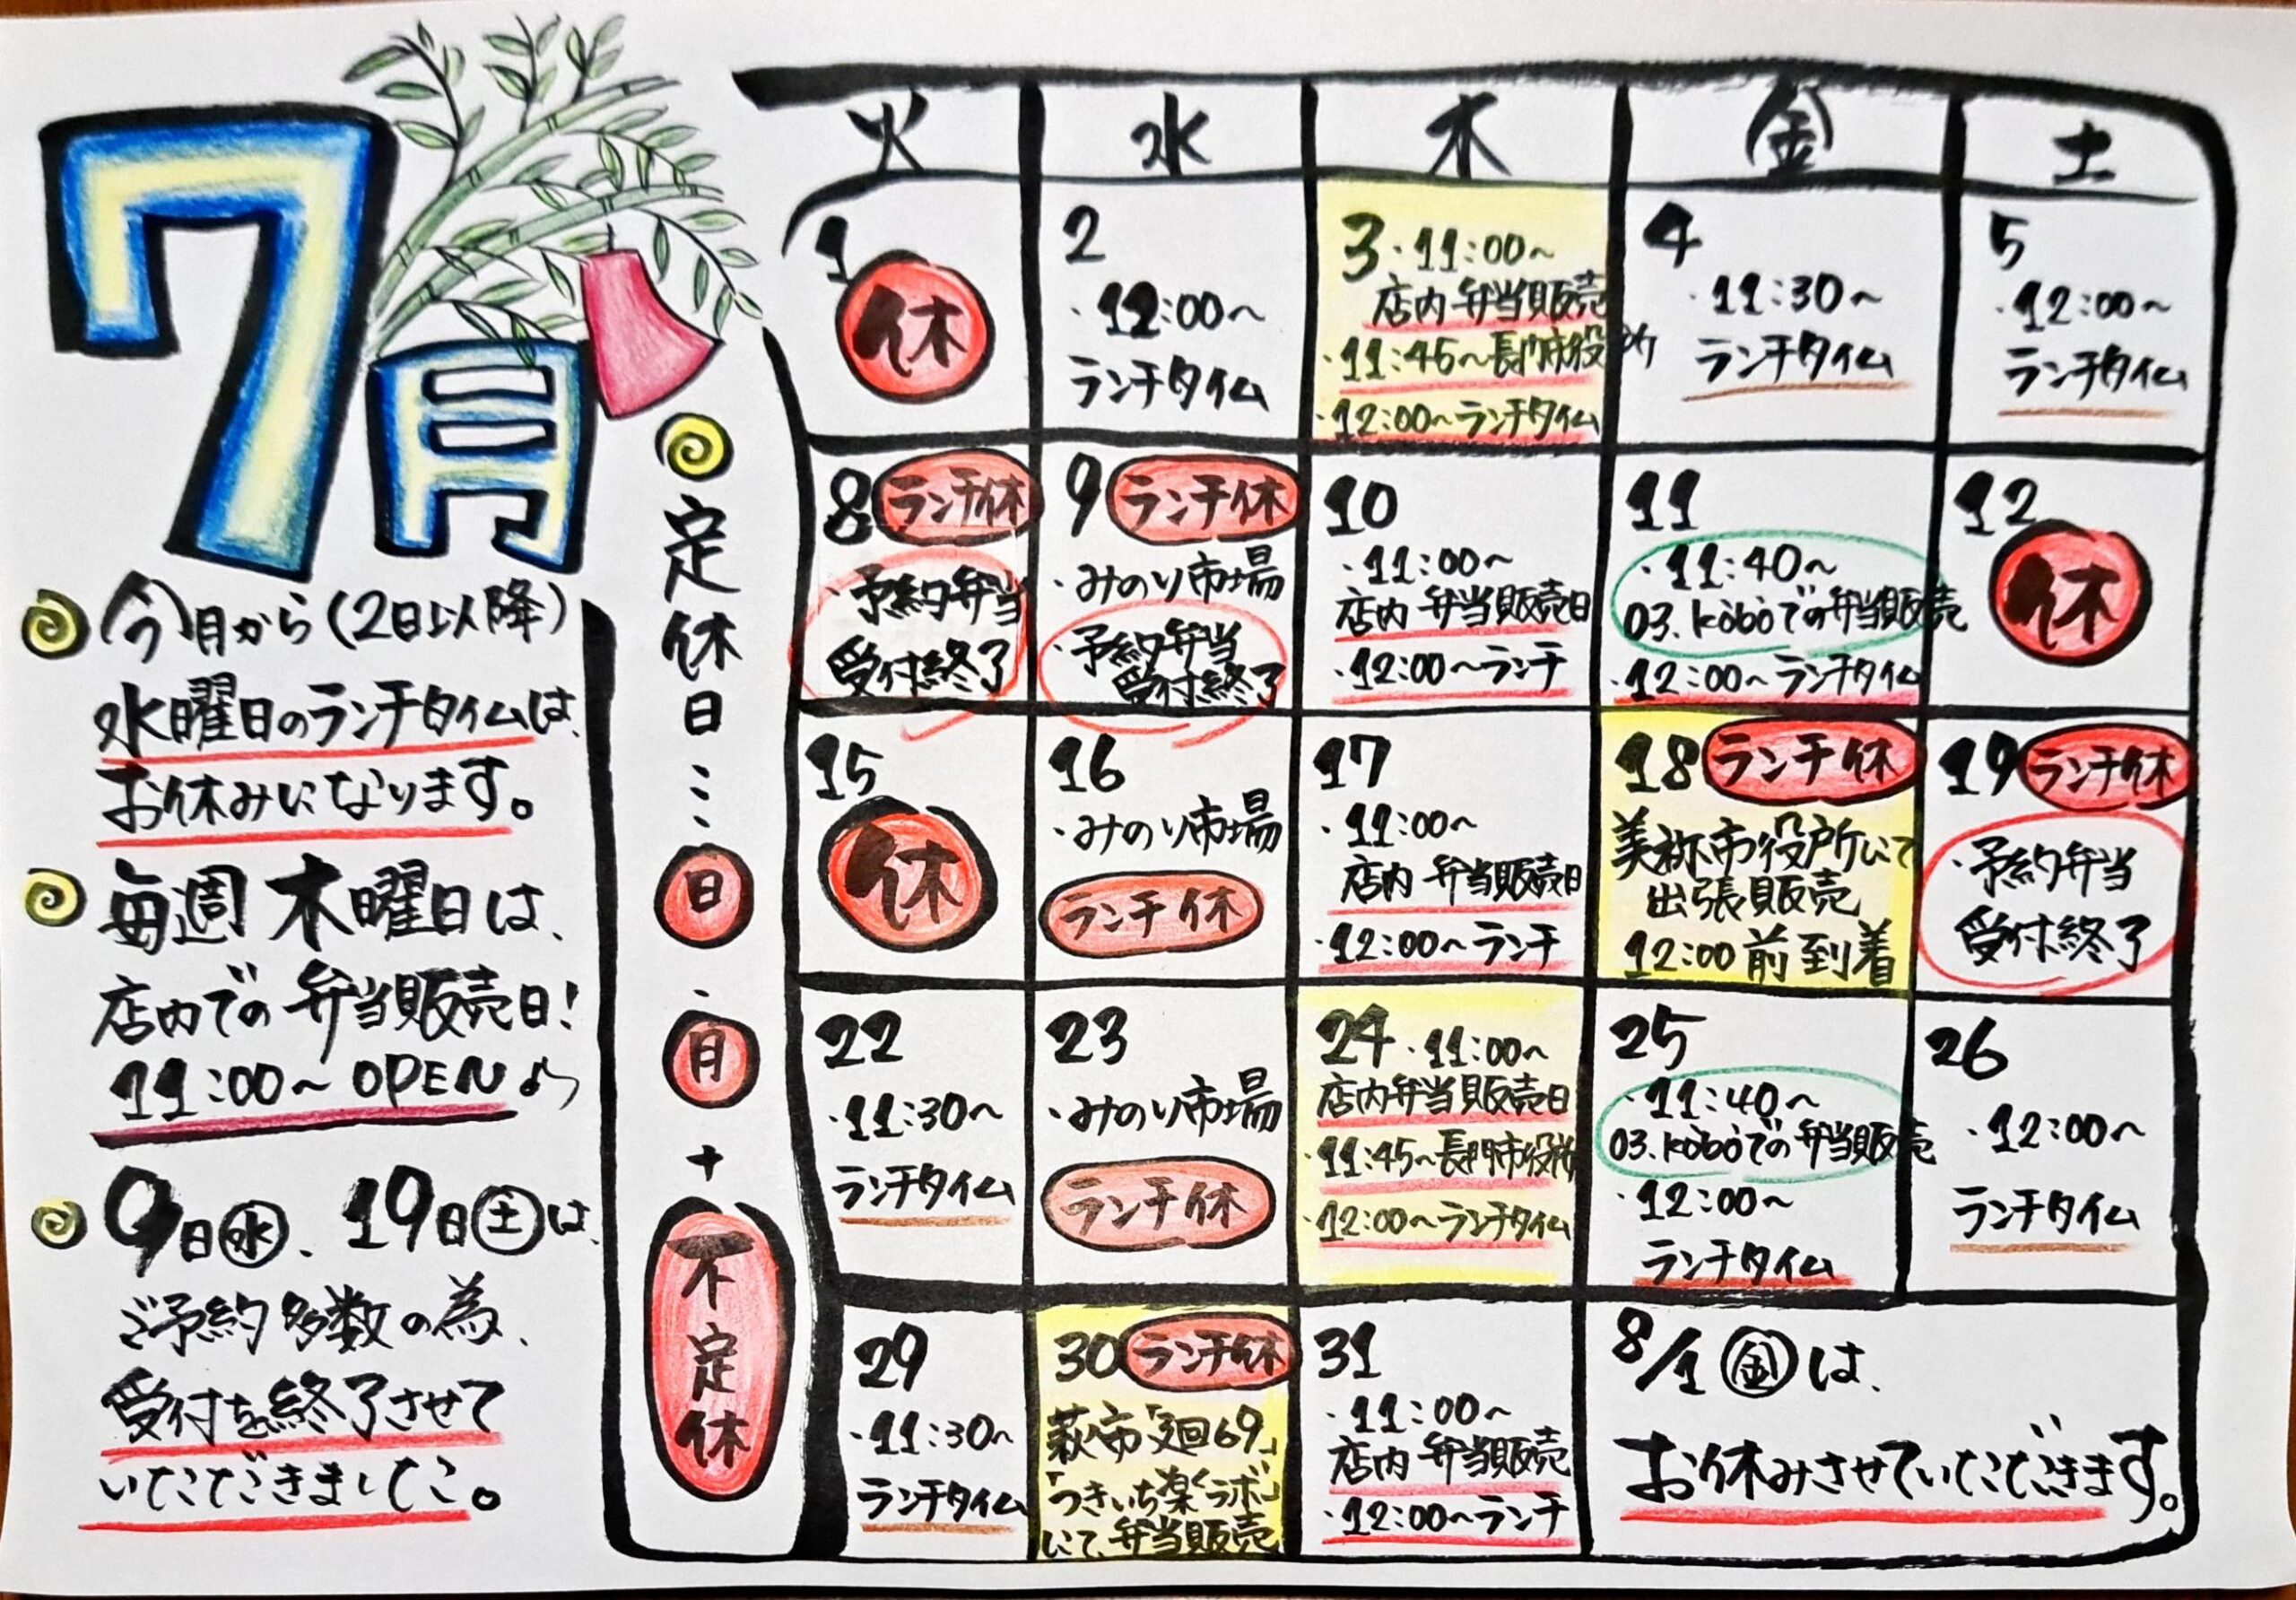 7月
今月から(2日以降)
水曜日のランチタイムは、
お休みになります。
毎週木曜日は、
店内での弁当販売日!
11:00~OPEN♪
9日㊌、19日㊏は、
ご予約多数の為、
受付を終了させて
いただきました。
定休日…日・月+不定休
火 水 木 金 土
1
休
2
・12:00~
ランチタイム
3・11:00~
店内弁当販売
・11:45~長門市役所
・12:00~ランチタイム
4
・11:30~
ランチタイム
5
・12:00~
ランチタイム
8 ランチ休
・予約弁当
受付終了
9 ランチ休
・みのり市場
・予約弁当
受付終了
10
・11:00~
店内弁当販売日
・12:00~ランチ
11
・11:40~
03.koboでの弁当販売
・12:00~ランチタイム
12
休
15
休
16
・みのり市場
ランチ休
17
・11:00~
店内弁当販売日
・12:00~ランチ
18 ランチ休
美祢市役所にて
出張販売
12:00前到着
19 ランチ休
・予約弁当
受付終了
22
・11:30~
ランチタイム
23
・みのり市場
ランチ休
24・11:00~
店内弁当販売日
・11:45~長門市役所
・12:00~ランチタイム
25
・11:40~
03.koboでの弁当販売
・12:00~
ランチタイム
26
・12:00~
ランチタイム
29
・11:30~
ランチタイム
30 ランチ休
萩市「廻69」
「つきいち楽くラボ」
にて、弁当販売
31
・11:00~
店内弁当販売
・12:00~ランチ
8/1㊎は、
お休みさせていただきます。